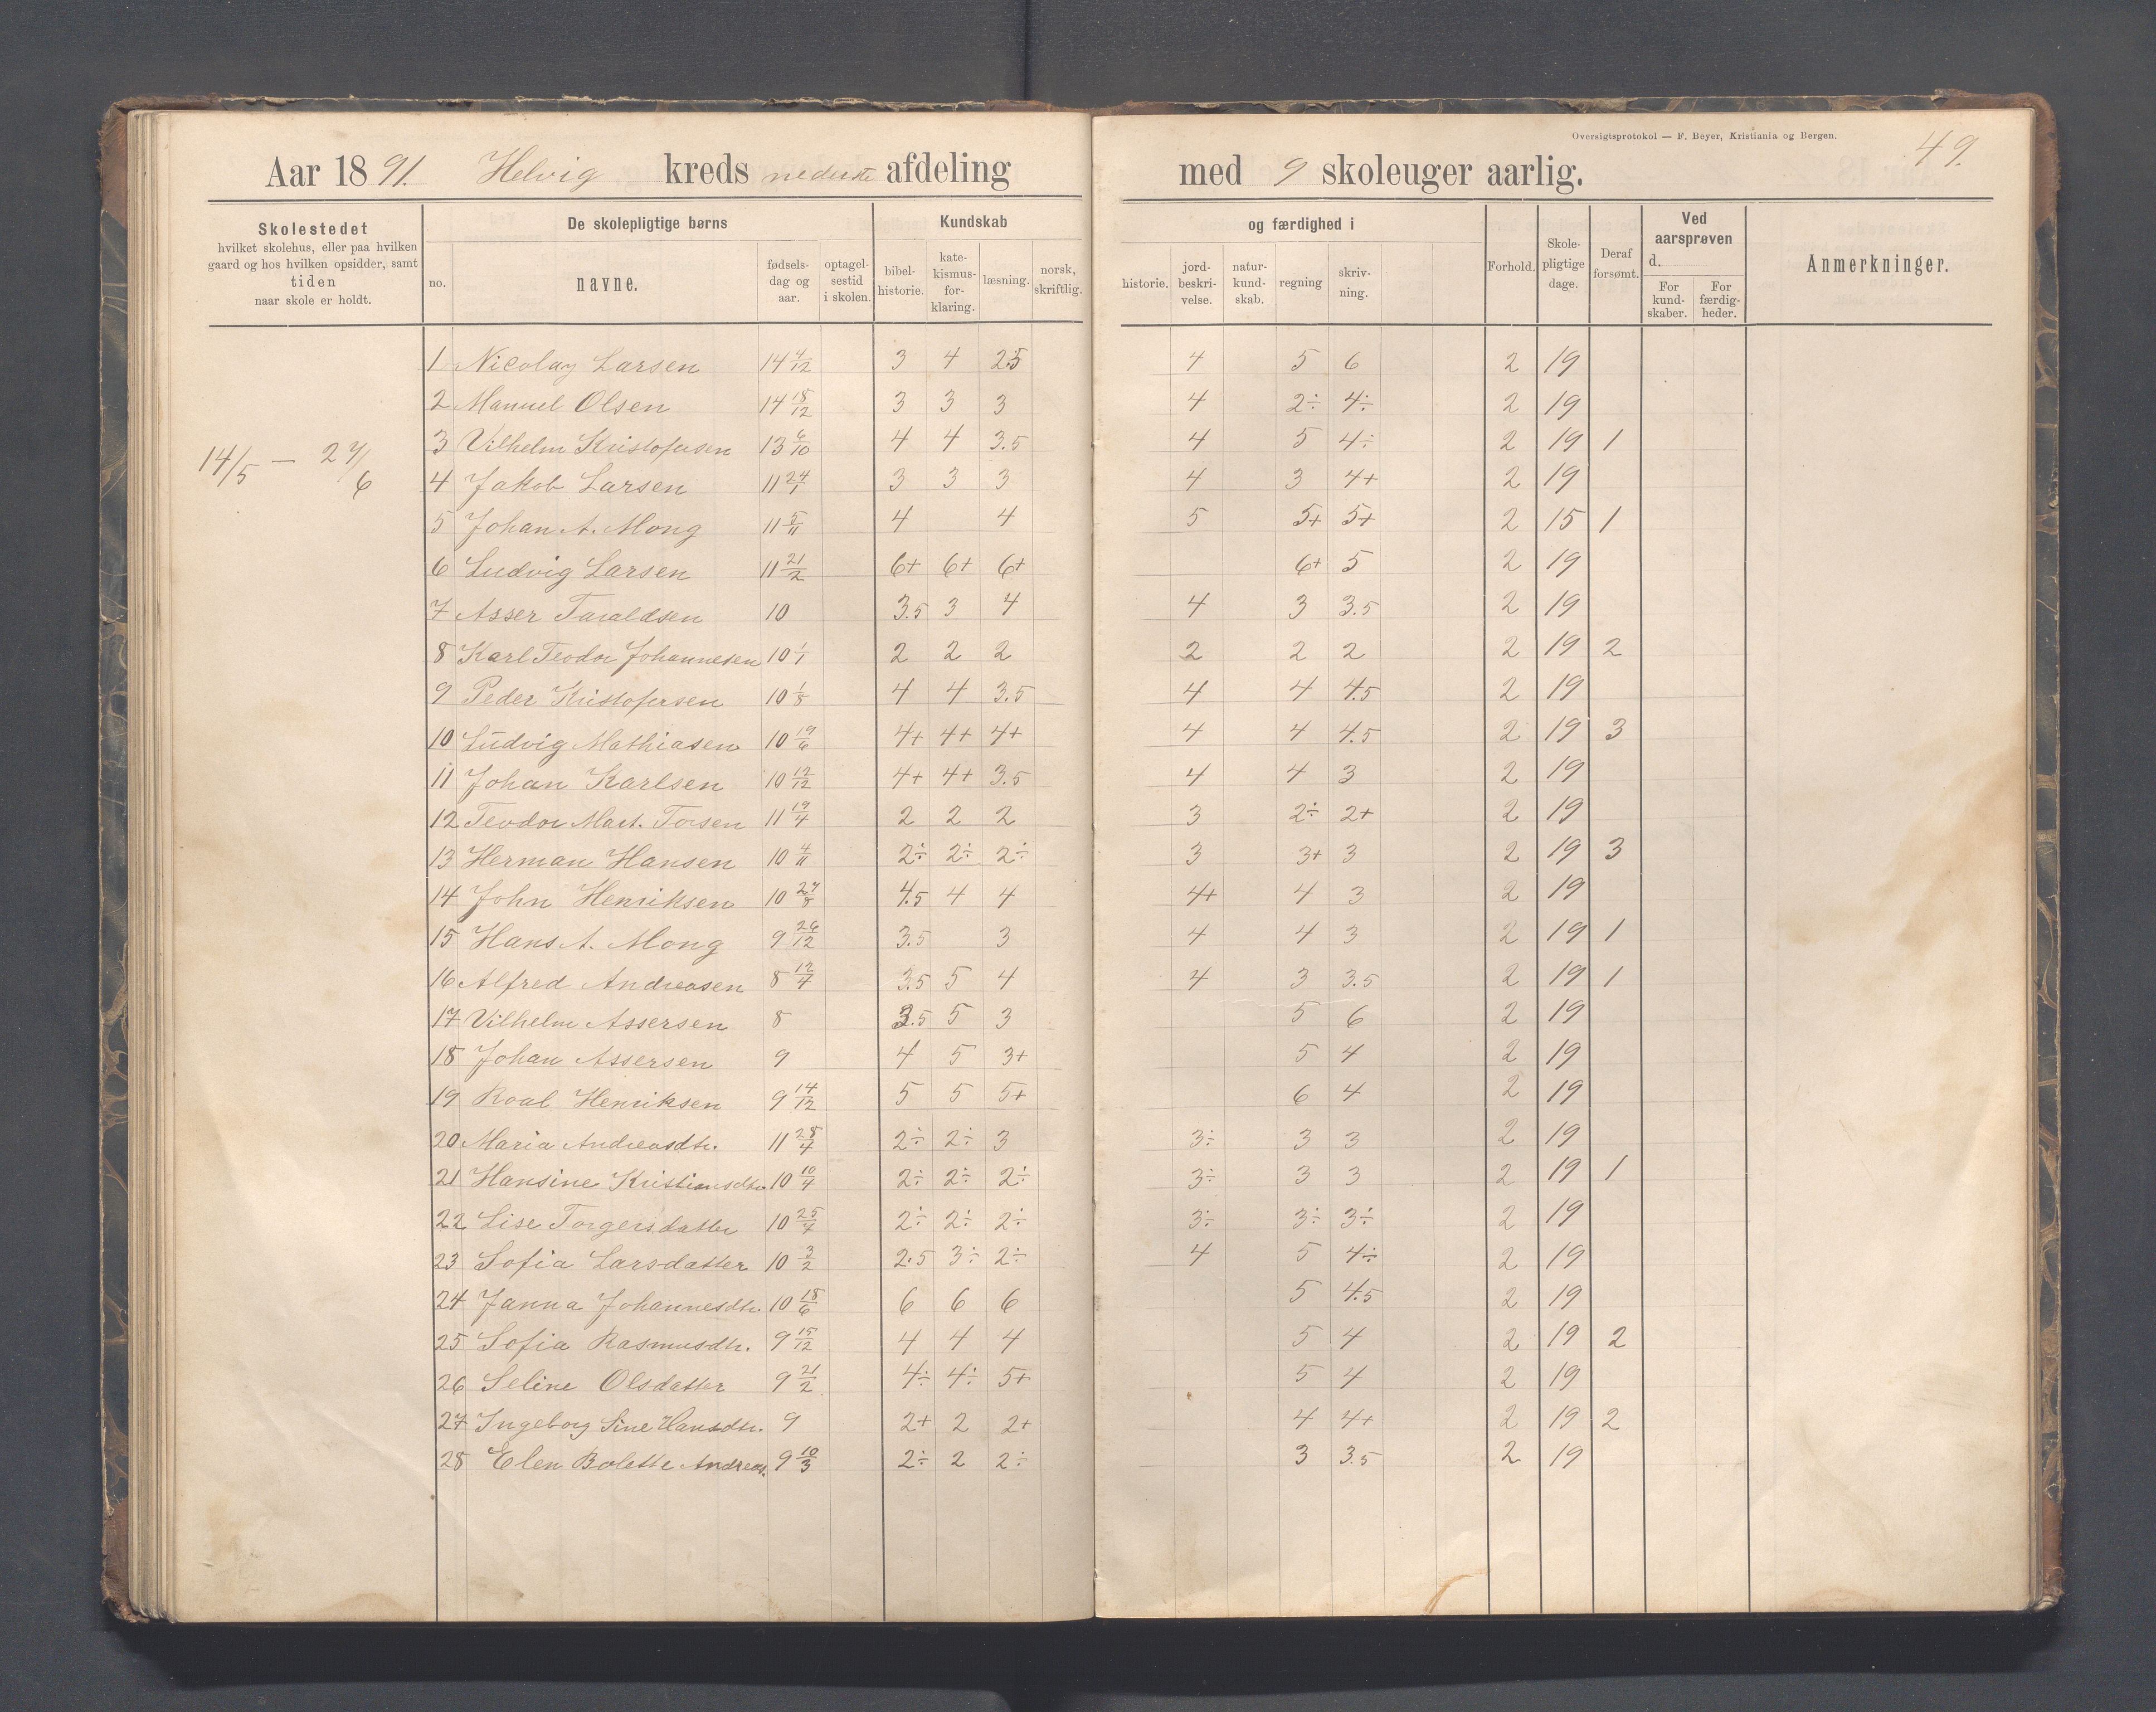 Oversigtsprotokol — F. Beyer, Kristiania og Bergen.
49.
Aar 1891. Helvig kreds nederste afdeling med 9 skoleuger aarlig.
Skolestedet
hvilket skolehus, eller paa hvilken
gaard og hos hvilken opsidder, samt
tiden
naar skole er holdt.
De skolepligtige børns
no.
navne.
fødsels-
dag og
aar.
optagel-
sestid
i skolen.
Kundskab
bibel-
historie.
kate-
kismus-
for-
klaring.
læsning.
norsk,
skriftlig.
og færdighed i
historie.
jord-
beskri-
velse.
natur-
kund-
skab.
regning
skriv-
ning.
Forhold.
Skole-
pligtige
dage.
Deraf
forsømt.
Ved
aarsprøven
d.
For
kund-
skaber.
For
færdig-
heder.
Anmerkninger.
14/5 — 27/6
1 Nicolay Larsen 14 4/12 3 4 2.5 4 5 6 2 19
2 Manuel Olsen 14 18/12 3 3 3 4 2÷ 4÷ 2 19
3 Vilhelm Kristofersen 13 6/10 4 4 3.5 4 5 4÷ 2 19 1
4 Jakob Larsen 11 24/1 3 3 3 4 3 4+ 2 19
5 Johan A. Mong 11 5/11 4 4 5 5+ 5+ 2 15 1
6 Ludvig Larsen 11 21/2 6+ 6+ 6+ 6+ 5 2 19
7 Asser Taraldsen 10 3.5 3 4 4 3 3.5 2 19
8 Karl Teodor Johannesen 10 1/1 2 2 2 2 2 2 2 19 2
9 Peder Kristofersen 10 1/8 4 4 3.5 4 4 4.5 2 19
10 Ludvig Mathiasen 10 19/6 4+ 4+ 4+ 4 4 4.5 2 19 3
11 Johan Karlsen 10 12/12 4+ 4+ 3.5 4 4 3 2 19
12 Teodor Mart. Torsen 11 19/4 2 2 2 3 2÷ 2+ 2 19
13 Herman Hansen 10 4/11 2÷ 2÷ 2÷ 3 3+ 3 2 19 3
14 John Henriksen 10 27/8 4.5 4 4 4+ 4 3 2 19
15 Hans A. Mong 9 26/12 3.5 3 4 4 3 2 19 1
16 Alfred Andreasen 8 12/4 3.5 5 4 4 3 3.5 2 19 1
17 Vilhelm Assersen 8 3.5 5 3 5 6 2 19
18 Johan Assersen 9 4 5 3+ 5 4 2 19
19 Roal Henriksen 9 14/12 5 5 5+ 6 4 2 19
20 Maria Andreasdtr. 11 28/4 2÷ 2÷ 3 3÷ 3 3 2 19
21 Hansine Kristiansdtr. 10 10/4 2÷ 2÷ 2÷ 3÷ 3 3 2 19 1
22 Lise Torgersdatter 10 25/4 2÷ 2÷ 2÷ 3÷ 3÷ 3÷ 2 19
23 Sofia Larsdatter 10 3/2 2.5 3÷ 2÷ 4 5 4÷ 2 19
24 Janna Johannesdtr. 10 18/6 6 6 6 5 4.5 2 19
25 Sofia Rasmusdtr. 9 15/12 4 4 4 5 4 2 19 2
26 Seline Olsdatter 9 21/2 4÷ 4÷ 5+ 5 4 2 19
27 Ingeborg Sine Hansdtr. 9 2+ 2 2+ 4 4+ 2 19 2
28 Elen Bolette Andreas. 9 10/3 2÷ 2 2÷ 3 3.5 2 19